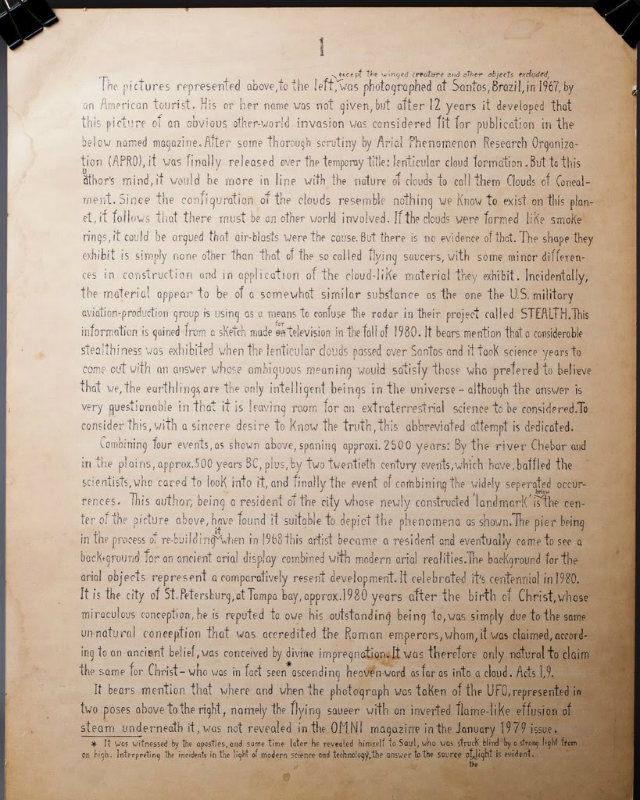 1
except the winged creature and other objects excluded,
The pictures represented above, to the left, was photographed at Santos, Brazil, in 1967, by
an American tourist. His or her name was not given, but after 12 years it developed that
this picture of an obvious other-world invasion was considered fit for publication in the
below named magazine. After some thorough scrutiny by Arial Phenomenon Research Organiza-
tion (APRO), it was finally released over the temporay title: lenticular cloud formation. But to this
athor's mind, it would be more in line with the nature of clouds to call them Clouds of Conceal-
ment. Since the configuration of the clouds resemble nothing we Know to exist on this plan-
et, it follows that there must be an other world involved. If the clouds were formed like smoke
rings, it could be argued that air-blasts were the cause. But there is no evidence of that. The shape they
exhibit is simply none other than that of the so called flying saucers, with some minor differen-
ces in construction and in application of the cloud-like material they exhibit. Incidentally,
the material appear to be of a somewhat similar substance as the one the U.S. military
aviation-production group is using as a means to confuse the radar in their project called STEALTH. This
information is gained from a sketch made for television in the fall of 1980. It bears mention that a considerable
stealthiness was exhibited when the lenticular clouds passed over Santos and it took science years to
come out with an answer whose ambiguous meaning would satisfy those who prefered to believe
that we, the earthlings, are the only intelligent beings in the universe - although the answer is
very questionable in that it is leaving room for an extraterrestrial science to be considered. To
consider this, with a sincere desire to Know the truth, this abbreviated attempt is dedicated.
Combining four events, as shown above, spaning approxi. 2500 years: By the river Chebar and
in the plains, approx. 500 years BC, plus, by two twentieth century events, which have, baffled the
scientists, who cared to look into it, and finally the event of combining the widely seperated occur-
rences. This author, being a resident of the city whose newly constructed 'landmark' is below the cen-
ter of the picture above, have found it suitable to depict the phenomena as shown. The pier being
in the process of re-building it when in 1968 this artist became a resident and eventually came to see a
back-ground for an ancient arial display combined with modern arial realities. The background for the
arial objects represent a comparatively resent development. It celebrated it's centennial in 1980.
It is the city of St. Petersburg, at Tampa bay, approx. 1980 years after the birth of Christ, whose
miraculous conception, he is reputed to owe his outstanding being to, was simply due to the same
un-natural conception that was accredited the Roman emperors, whom, it was claimed, accord-
ing to an ancient belief, was conceived by divine impregnation. It was therefore only natural to claim
the same for Christ - who was in fact seen * ascending heaven-ward as far as into a cloud. Acts 1,9.
It bears mention that where and when the photograph was taken of the UFO, represented in
two poses above to the right, namely the flying saucer with an inverted flame-like effusion of
steam underneath it, was not revealed in the OMNI magazine in the January 1979 issue.
* It was witnessed by the apostles, and some time later he revealed himself to Saul, who was struck blind by a strong light from
on high. Interpreting the incidents in the light of modern science and technology, the answer to the source of the light is evident.